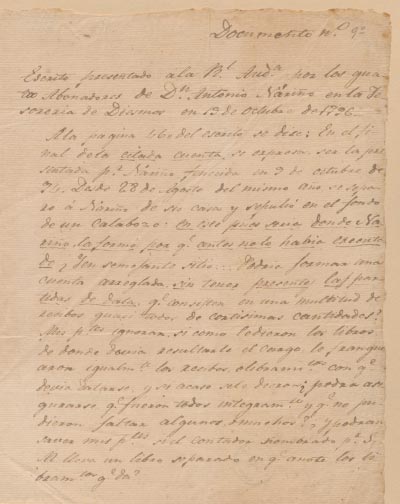 Documento n.º 9º
Escrito presentado a la R.l Aud.a por los qua=
tro Abonadores de D.n Antonio Nariño en la Te
soreria de Diezmos en 13 de Octubre de 1796
A la pagina 46 del escrito se dice: En el fi
nal de la citada cuenta, se expresa ser la pre
sentada p.r Nariño fincida en 3 de octubre de
94. Desde 28 de Agosto del mismo año se sepa
ró á Nariño de su casa y sepultó en el fondo
de un calabozo: en este pues seria donde Na
riño la formó por q.e antes no lo habia executa
do y ¿en semejante sitio... Podria formar una
cuenta arreglada, sin tener presentes las par
tidas de data, q.e consisten en una multitud de
recibos quasi todos de cortisimas cantidades?
Mis p.tes ignoran, si como le dieron los libros
de donde devia resultarle el cargo, le franque
aron igualm.te los recibos, o libram.tos con q.e
devia datarse, y si acaso se le dieron ¿podra ase
gurarse q.e fueron todos integram.te y q.e no pu
dieron faltar algunos, ó muchos? ¿y podran
saver mis p.tes si el Contador nombrado p.r S.
M. lleva un libro separado en q.e anote los li
bram.tos q.e da?